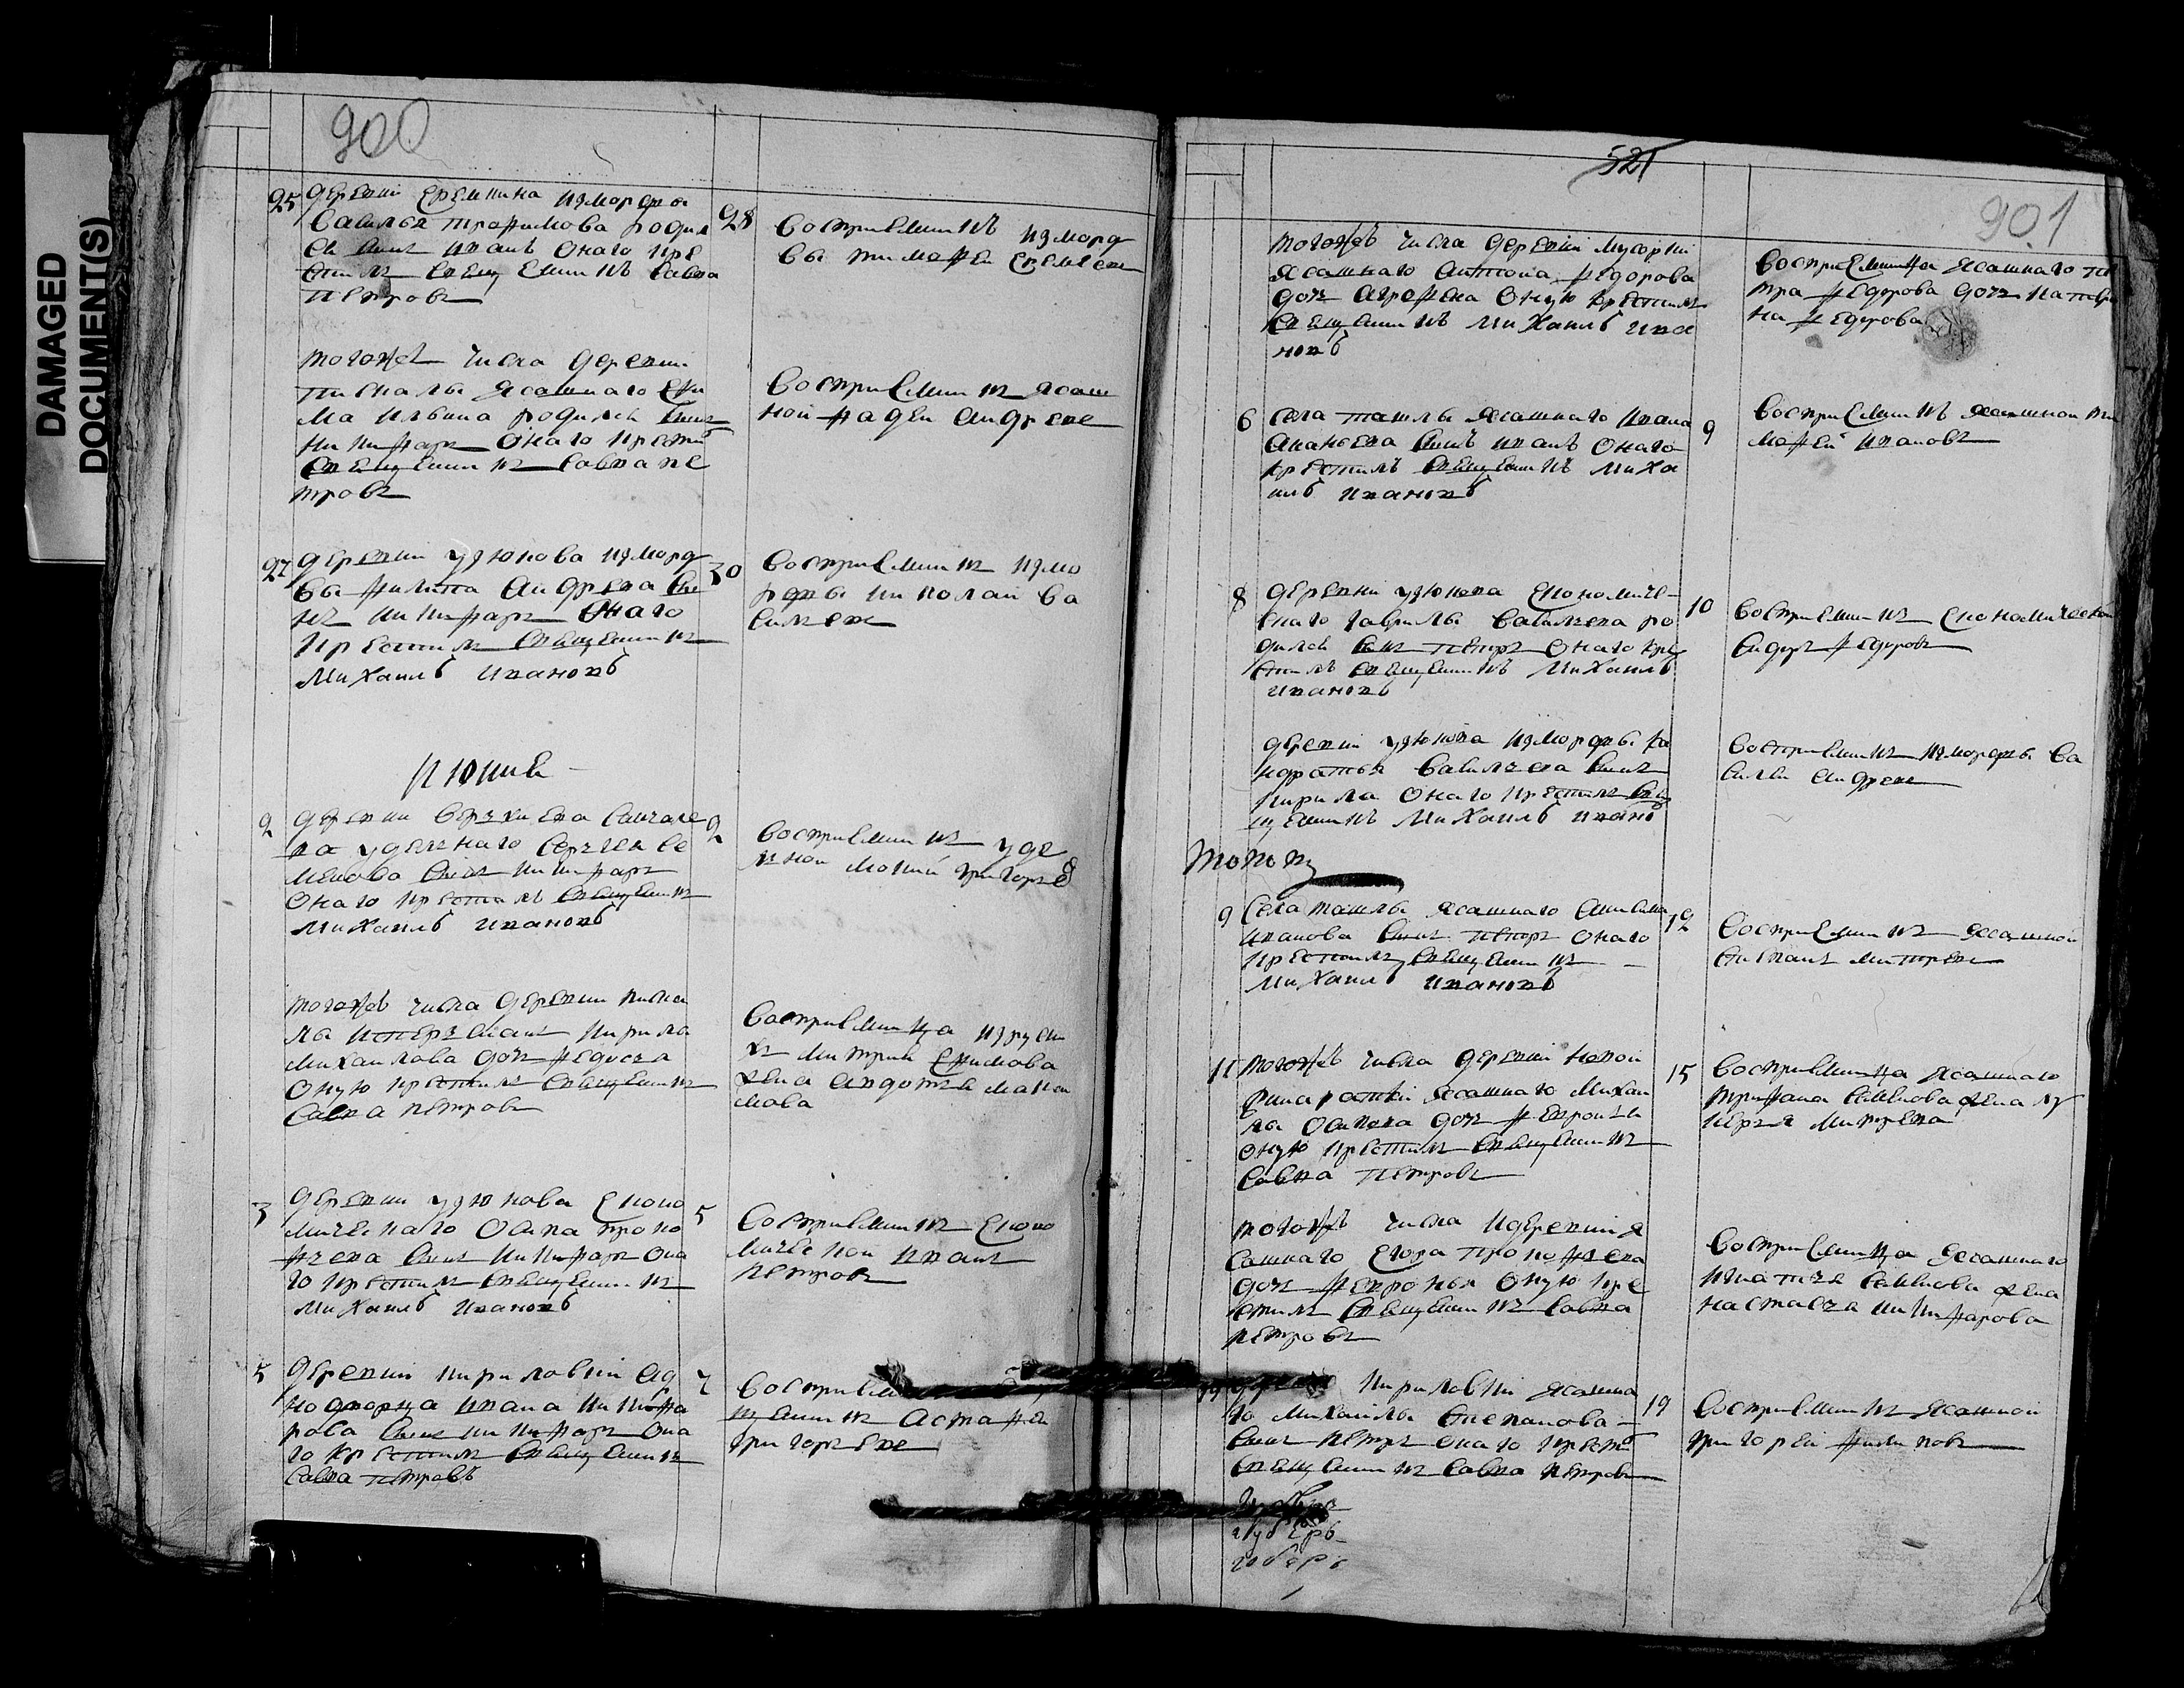 DAMAGED
DOCUMENT(S)
900
25 деревни Еремкина измордвы
Василья трофимова родил
ся сынъ иванъ онаго кре
стилъ священникъ савва
петровъ
28 восприемникъ изморд
вы тимофей
тогожъ числа деревни
пискалы ясашнаго Ефи
ма ильина родился сынъ
никифаръ онаго крестил
священникъ савва пе
тровъ
восприемникъ ясаш
ной фадеи андреевъ
27 деревни узюкова изморд
вы филипа андреева сы
нъ никифаръ онаго
крестилъ священникъ
михаилъ ивановъ
30 восприемникъ измо
рдвы николаи ва
сильевъ
июния
2 деревни
удельнаго сергея се
менова сынъ никифаръ
онаго крестилъ священникъ
михаилъ ивановъ
2 восприемникъ уде
льнои григорьев
тогожъ числа деревни писка
лы кирила
михаилова дочь федосья
оную крестилъ священникъ
савва петровъ
восприемница изруски
хъ митрия Ефимова
жена авдотья макси
мова
3 деревни узюкова Еконо
мическаго осипа проко
фьева сынъ никифаръ она
го крестилъ священникъ
михаилъ ивановъ
5 восприемникъ Еконо
мическои иванъ
петровъ
5 деревни кириловки од
нодворца ивана никифа
рова сынъ никифаръ она
го крестилъ священникъ
савва петровъ
7
щенникъ астафеи
григорьевъ
521
901
тогожъ числа деревни мусорки
ясашнаго антона федорова
дочь аграфена оную крестилъ
священникъ михаилъ ива
новъ
восприемница ясашнаго пе
тра федорова дочь катери
на федорова
6 села ташлы ясашнаго ивана
ананьева сынъ иванъ онаго
крестилъ священникъ миха
илъ ивановъ
9 восприемникъ ясашнои ти
мофей ивановъ
8 деревни узюкова Економиче
скаго гаврилы васильева ро
дился сынъ петръ онаго кре
стилъ священникъ михаилъ
ивановъ
10 восприемникъ Економическои
сидоръ федоровъ
деревни узюкова измордвы ко
ндратья васильева сынъ
кирила онаго крестилъ свя
щенникъ михаилъ иванов
восприемникъ измордвы ва
силеи андреевъ
9 села ташлы ясашнаго анисима
иванова сынъ петръ онаго
крестилъ священникъ
михаилъ ивановъ
12 восприемникъ ясашнои
степанъ митревъ
11 тогожъ числа деревни новой
ясашнаго михаи
лы осипова дочь февронья
оную крестилъ священникъ
савва петровъ
15 восприемница ясашнаго
трифана семенова жена лу
керья митрева
тогожъ числа идеревни я
сашнаго Егора прокофьева
дочь февронья оную кре
стилъ священникъ савва
петровъ
восприемница ясашнаго
игнатья семенова жена
настасья никифарова
кириловки ясашна
го михаилы степанова
сынъ петръ онаго крестил
священникъ савва петровъ
19 восприемникъ ясашнои
григореи филиповъ